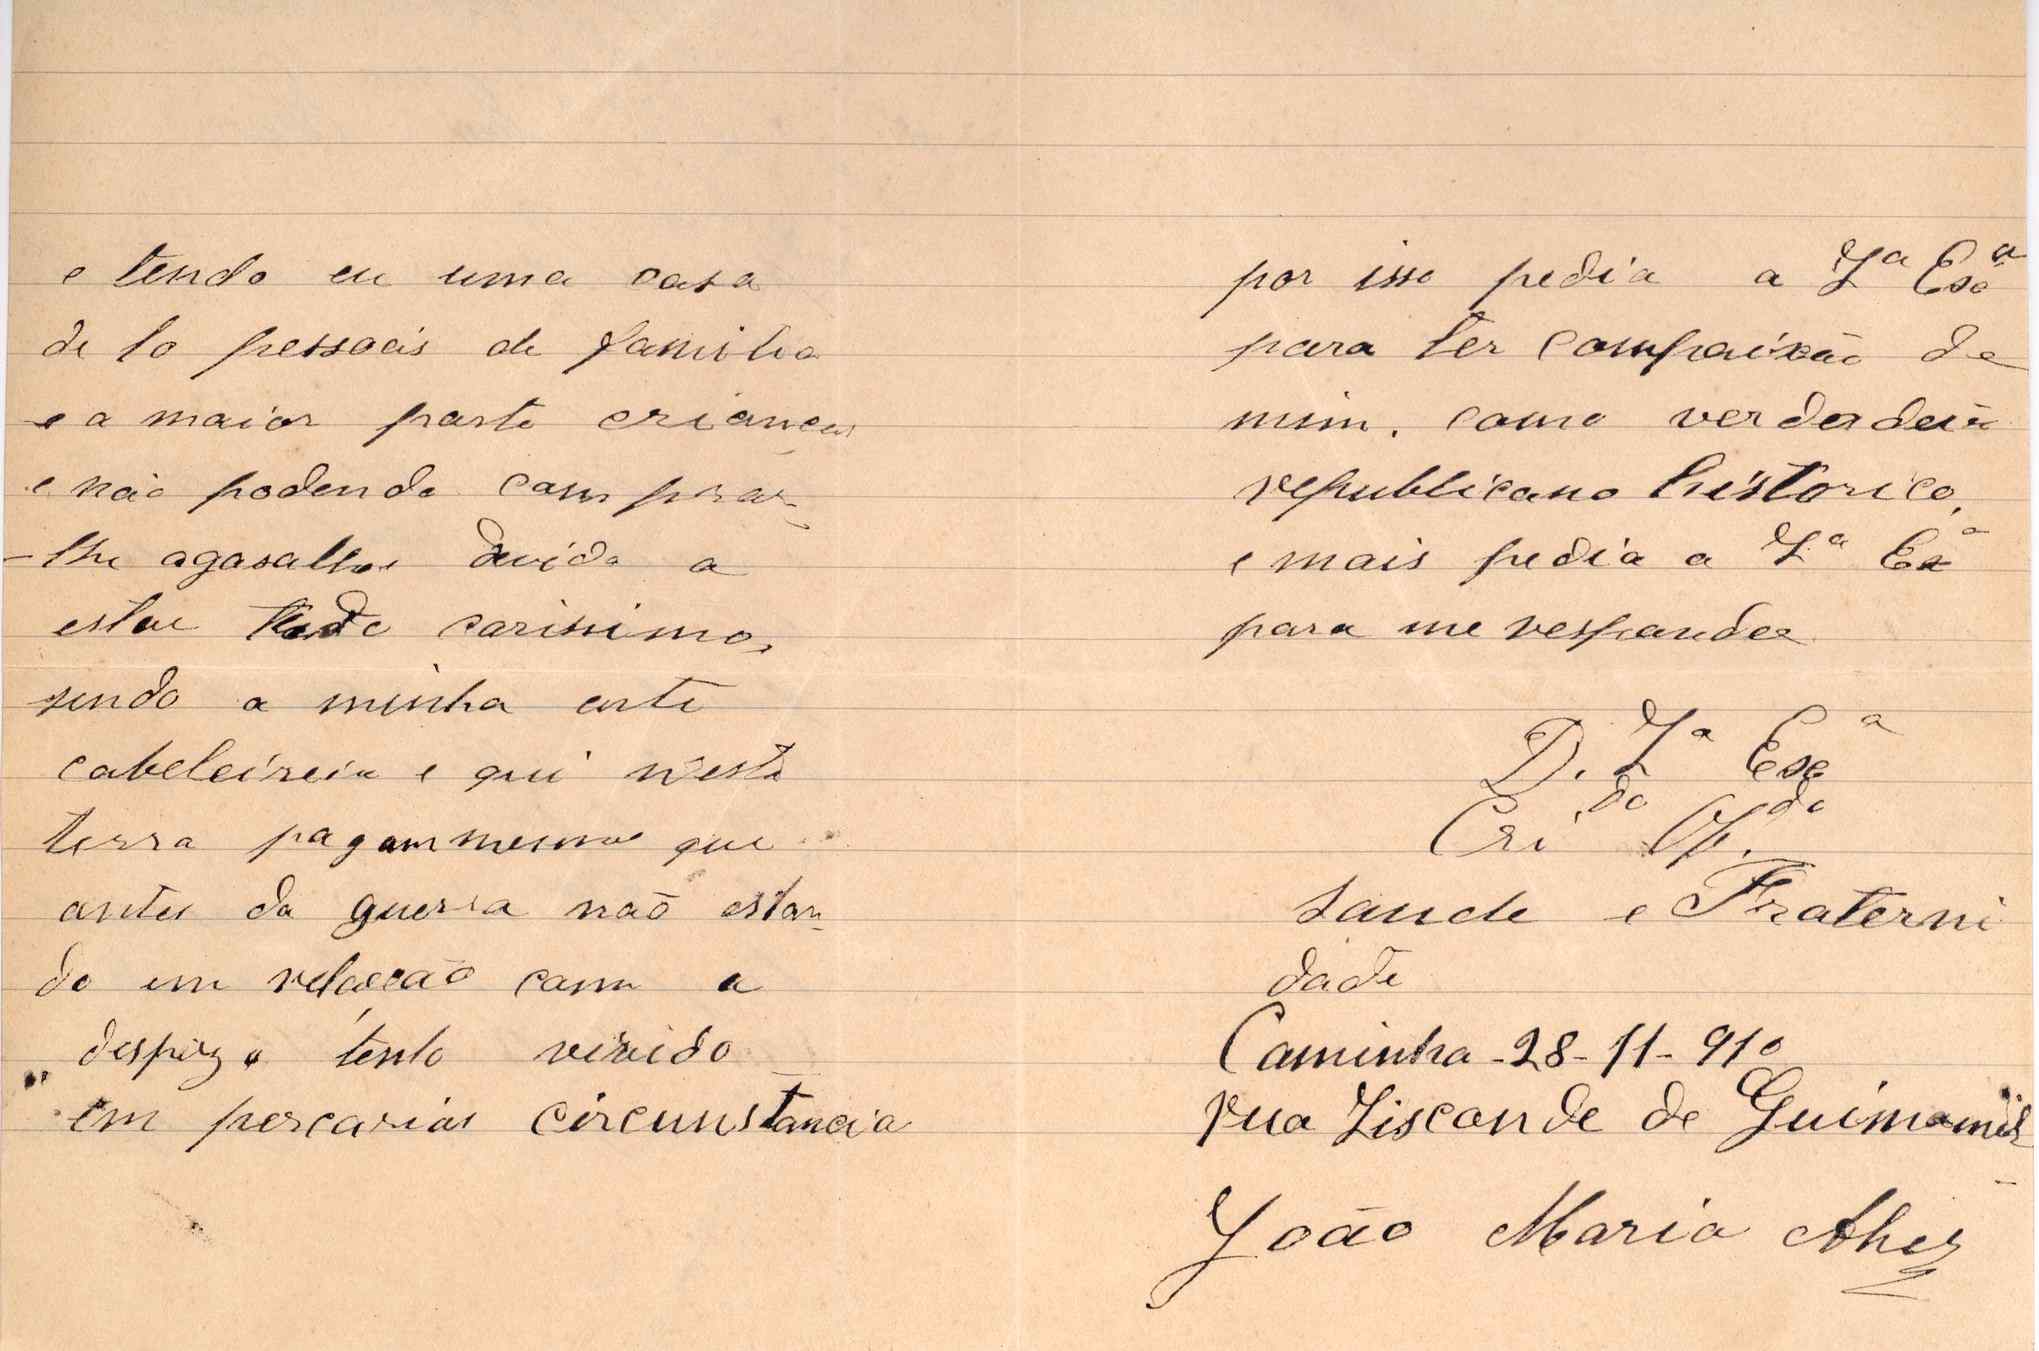 e tendo eu uma casa
de 10 pessoais de familia
e a maior parte crianças
e não podendo comprar
-lhe agasalhos devido a
estar tudo carissimo,
sendo a minha arte
cabeleireiro e qui n'esta
terra pagam mesmo que
antes da guerra não estan-
do em relação com a
despiza tenho vivido
em percarias circunstancia
por isso pedia a Vª Exª
para ter compaixão de
mim. como verdadeiro
republicano historico,
e mais pedia a Vª Exª
para me responder
D. Vª Exª
Cri.do Of.do
Saude e Fraterni
dade
Caminha -28-11-910
rua Visconde de
João Maria Alves